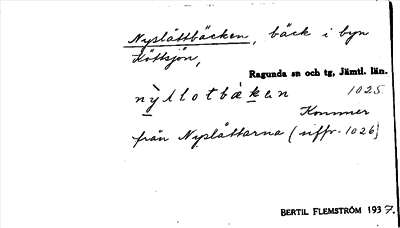 Nyslåttbäcken, bäck i byn
Köttsjön,
Ragunda sn och tg, Jämtl. län.
nỳllotbækan 1025
Kommer
från Nyslåttarna (siffr. 1026)
BERTIL FLEMSTRÖM 1937.